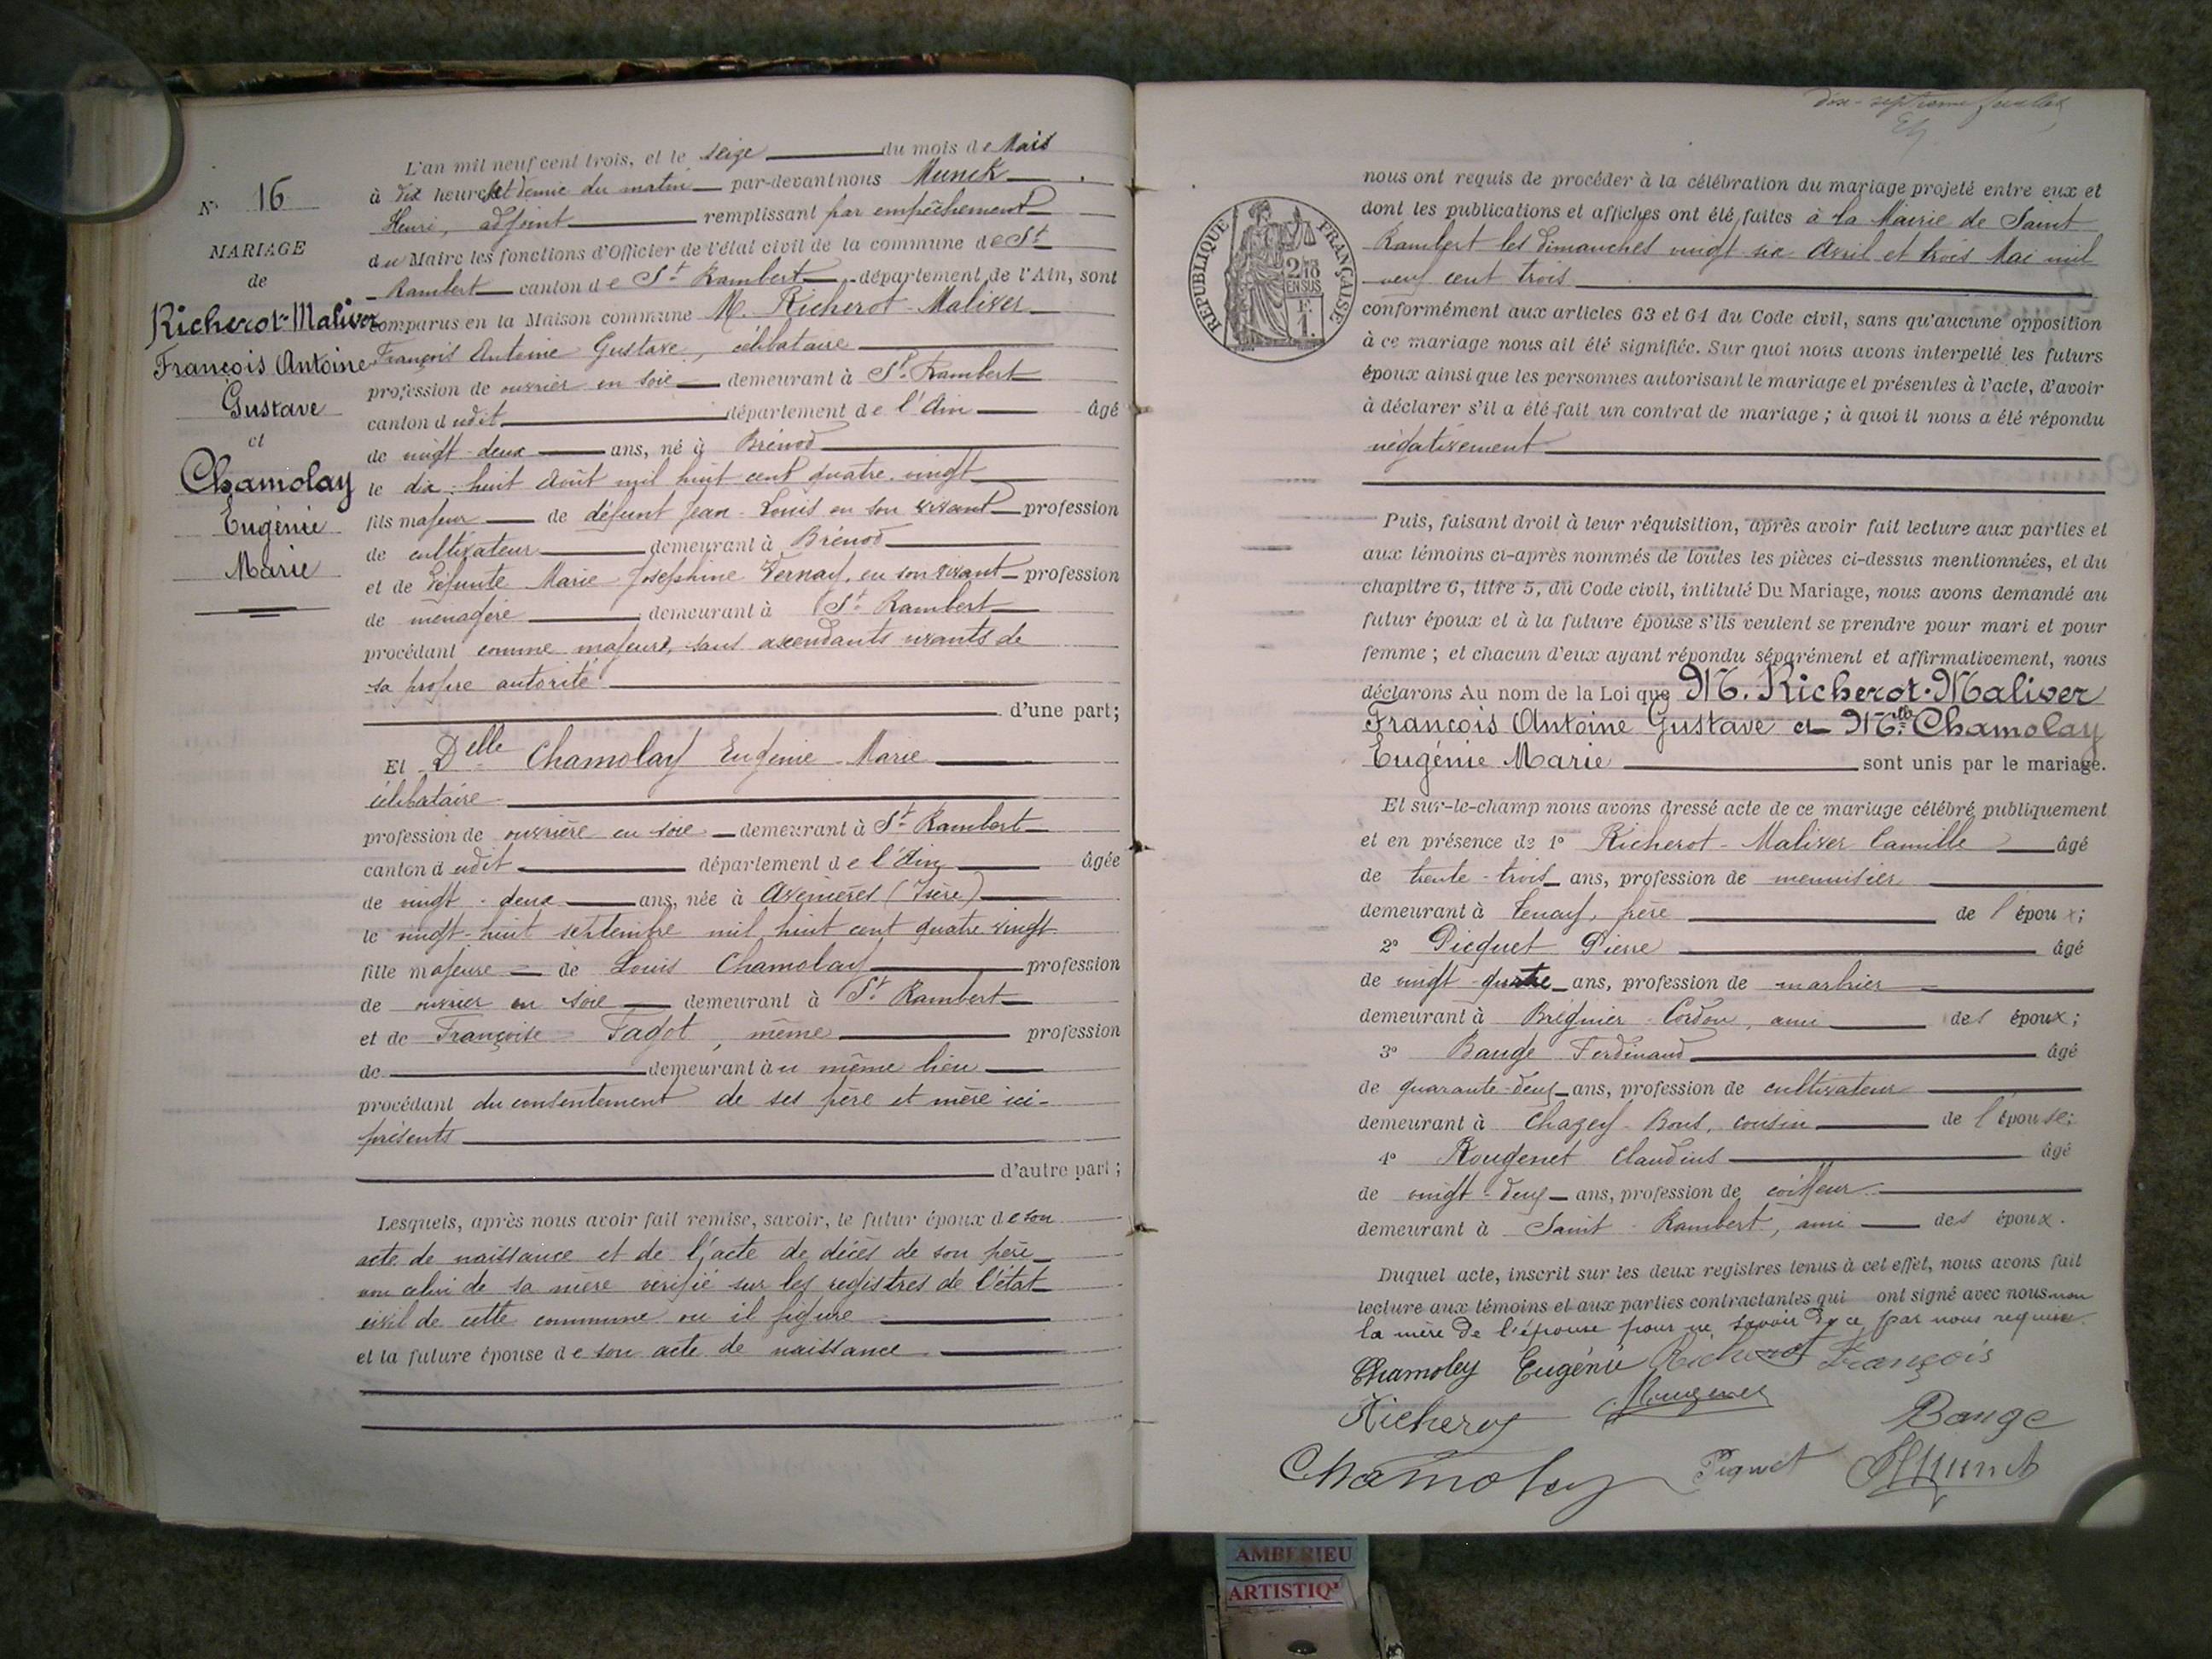 N° 16
MARIAGE
de
Richerot-Maliver
François Antoine
Gustave
et
Chamolay
Eugénie
Marie
L'an mil neuf cent trois, et le seize du mois de Mais
à dix heures et demie du matin par-devant nous Munck
Henri, adjoint remplissant par empêchement
du Maire les fonctions d'Officier de l'état civil de la commune de St
Rambert canton de St Rambert département de l'Ain, sont
comparus en la Maison commune M. Richerot-Maliver
François Antoine Gustave, célibataire
profession de ouvrier en soie demeurant à St Rambert
canton dudit département de l'Ain âgé
de vingt-deux ans, né à Brénod
le dix-huit Août mil huit cent quatre-vingt
fils majeur de défunt Jean-Louis en son vivant profession
de cultivateur demeurant à Brénod
et de défunte Marie Joséphine Vernay, en son vivant profession
de ménagère demeurant à St Rambert
procédant comme majeur, sans ascendants vivants de
sa propre autorité
d'une part;
Et Delle Chamolay Eugénie-Marie
célibataire
profession de ouvrière en soie demeurant à St Rambert
canton dudit département de l'Ain âgée
de vingt-deux ans, née à Avenières (Isère)
le vingt-huit septembre mil huit cent quatre vingt
fille majeure de Louis Chamolay profession
de ouvrier en soie demeurant à St Rambert
et de Françoise Fagot, même profession
de demeurant àu même lieu
procédant du consentement de ses père et mère ici-
présents
d'autre part;
Lesquels, après nous avoir fait remise, savoir, le futur époux de son
acte de naissance et de l'acte de décès de son père
non celui de sa mère vérifié sur les registres de l'état
civil de cette commune ou il figure
et la future épouse de son acte de naissance
dix-septième feuillet
RÉPUBLIQUE FRANÇAISE
2/10
EN SUS
F.
1.
nous ont requis de procéder à la célébration du mariage projeté entre eux et
dont les publications et affiches ont été faites à la Mairie de Saint
Rambert les dimanches vingt six Avril et trois Mai mil
neuf cent trois
conformément aux articles 63 et 64 du Code civil, sans qu'aucune opposition
à ce mariage nous ait été signifiée. Sur quoi nous avons interpellé les futurs
époux ainsi que les personnes autorisant le mariage et présentes à l'acte, d'avoir
à déclarer s'il a été fait un contrat de mariage; à quoi il nous a été répondu
négativement
Puis, faisant droit à leur réquisition, après avoir fait lecture aux parties et
aux témoins ci-après nommés de toutes les pièces ci-dessus mentionnées, et du
chapitre 6, titre 5, du Code civil, intitulé Du Mariage, nous avons demandé au
futur époux et à la future épouse s'ils veulent se prendre pour mari et pour
femme; et chacun d'eux ayant répondu séparément et affirmativement, nous
déclarons Au nom de la Loi que M. Richerot-Maliver
François Antoine Gustave et Mlle Chamolay
Eugénie Marie sont unis par le mariage.
Et sur-le-champ nous avons dressé acte de ce mariage célébré publiquement
et en présence de 1° Richerot-Maliver Camille âgé
de trente-trois ans, profession de menuisier
demeurant à Tenay, frère de l'époux;
2° Picquet Pierre âgé
de vingt-quatre ans, profession de marbrier
demeurant à Brégnier-Cordon, ami des époux;
3° Bauge Ferdinand âgé
de quarante-deux ans, profession de cultivateur
demeurant à Chazey-Bons, cousin de l'épouse;
4° Rougenet Claudius âgé
de vingt-deux ans, profession de coiffeur
demeurant à Saint-Rambert, ami des époux.
Duquel acte, inscrit sur les deux registres tenus à cet effet, nous avons fait
lecture aux témoins et aux parties contractantes qui ont signé avec nous non
la mère de l'épouse pour ne savoir de ce par nous requise.
Chamoley Eugénie Richerot François
Richerot Rougenet Bauge
Chamoley Piquet HMunck
AMBERIEU
ARTISTIQ'